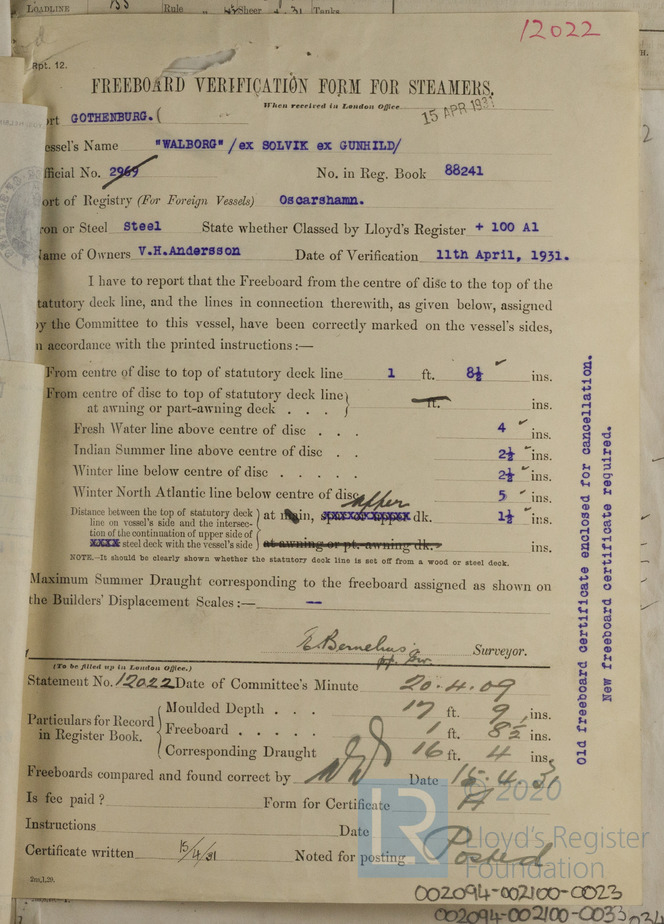 LOADLINE Rule Sheer Tanks
12022
Rpt. 12.
FREEBOARD VERIFICATION FORM FOR STEAMERS.
When received in London Office 15 APR 1931
rt GOTHENBURG.(
essel's Name "WALBORG"/ex SOLVIK ex GUNHILD/
fficial No. 2969 No. in Reg. Book 88241
ort of Registry (For Foreign Vessels) Oscarshamn.
ron or Steel Steel State whether Classed by Lloyd's Register + 100 A1
ame of Owners V.H.Andersson Date of Verification 11th April, 1931.
I have to report that the Freeboard from the centre of disc to the top of the
tatutory deck line, and the lines in connection therewith, as given below, assigned
y the Committee to this vessel, have been correctly marked on the vessel's sides,
n accordance with the printed instructions:—
From centre of disc to top of statutory deck line 1 ft. 8½ ins.
From centre of disc to top of statutory deck line
at awning or part-awning deck . . . ft. ins.
Fresh Water line above centre of disc . . . 4 ins.
Indian Summer line above centre of disc . . 2½ ins.
Winter line below centre of disc . . . . . 2½ ins.
Winter North Atlantic line below centre of disc 5 ins.
upper
Distance between the top of statutory deck
line on vessel's side and the intersec-
tion of the continuation of upper side of
XXXX steel deck with the vessel's side
at main, spar or upper dk. 1½ ins.
at awning or pt.-awning dk. ins.
NOTE.—It should be clearly shown whether the statutory deck line is set off from a wood or steel deck.
Maximum Summer Draught corresponding to the freeboard assigned as shown on
the Builders' Displacement Scales:— —
E. Bernelius Surveyor.
(To be filled up in London Office.)
Statement No. 12022 Date of Committee's Minute 20.4.09
Particulars for Record
in Register Book.
Moulded Depth . . . 17 ft. 9 ins.
Freeboard . . . . . 1 ft. 8½ ins.
Corresponding Draught 16 ft. 4 ins.
Freeboards compared and found correct by Date 15.4.31
Is fee paid ? Form for Certificate A
Instructions Date
Certificate written 15/4/31 Noted for posting Posted
2m,1,29.
Old freeboard certificate enclosed for cancellation.
New freeboard certificate required.
© 2020
LR
Lloyd's Register
Foundation
002094-002100-0023
002094-002100-0033